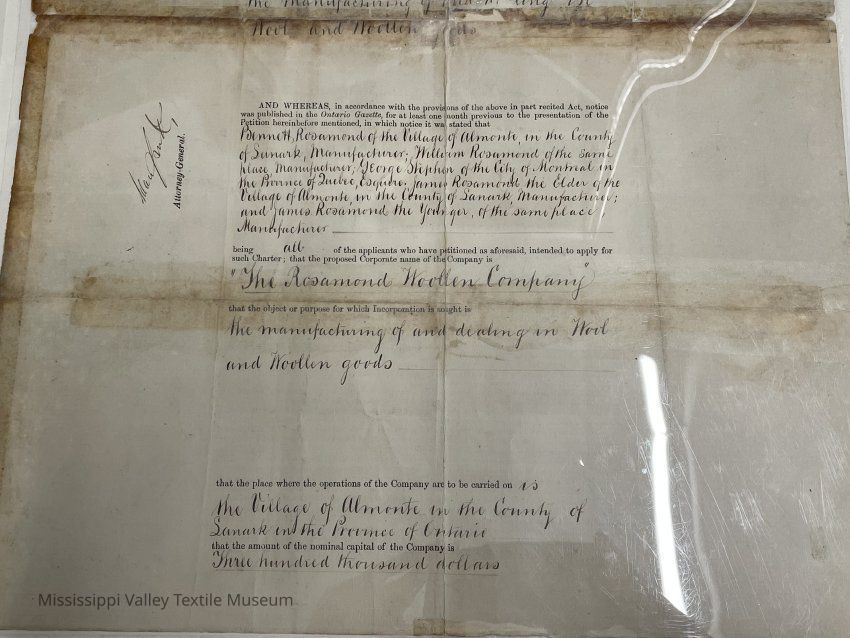 the manufacturing of and dealing in
Wool and Woollen goods
AND WHEREAS, in accordance with the provisions of the above in part recited Act, notice
was published in the Ontario Gazette, for at least one month previous to the presentation of the
Petition hereinbefore mentioned, in which notice it was stated that
Bennett Rosamond of the Village of Almonte, in the County
of Lanark, Manufacturer; William Rosamond of the same
place Manufacturer; George Stephen of the City of Montreal in
the Province of Quebec, Esquire, James Rosamond the Elder of the
Village of Almonte, in the County of Lanark, Manufacturer;
and James Rosamond the Younger, of the same place
Manufacturer
Attorney-General.
being all of the applicants who have petitioned as aforesaid, intended to apply for
such Charter; that the proposed Corporate name of the Company is
"The Rosamond Woollen Company"
that the object or purpose for which Incorporation is sought is
the manufacturing of and dealing in Wool
and Woollen goods
that the place where the operations of the Company are to be carried on is
the Village of Almonte in the County of
Lanark in the Province of Ontario
that the amount of the nominal capital of the Company is
Three hundred thousand dollars
Mississippi Valley Textile Museum